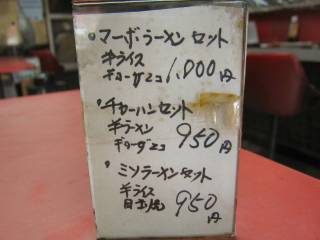 ・マーボラーメンセット
半ライス
ギョーザ2コ 1,000円
・チャーハンセット
半ラーメン
ギョーザ2コ 950円
・ミソラーメンセット
半ライス
目玉焼 950円